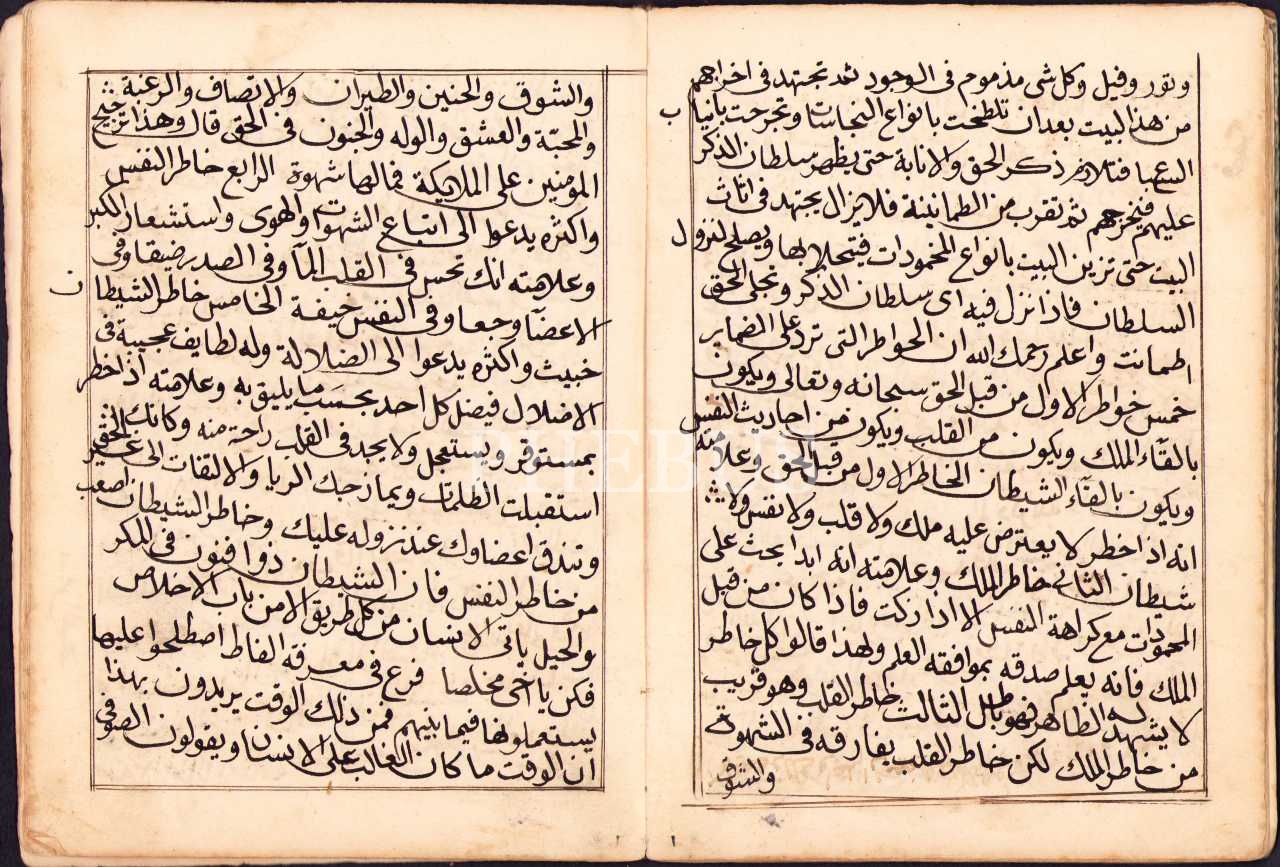 ونور وفيل وكل شى مذموم فى الوجود ثم تجتهد فى اخراجهم
من هذا البيت بعد ان تلطخت بانواع النجاسات وتجرحت بانياب
السباع فتلازم ذكر الحق والانابة حتى يظهر سلطان الذكر
عليهم فيخرجهم ثم تقرب من الطمانينة فلا يزال يجتهد فى اثاث
البيت حتى تزين البيت بانواع المحمودات فيتحلا بها ويصلح لنزول
السلطان فاذا نزل فيه اى سلطان الذكر وتجلى الحق
اطمانت واعلم رحمك الله ان الخواطر التى ترد على الضماير
خمس خواطر الاول من قبل الحق سبحانه وتعالى ويكون
بالقآء الملك ويكون من القلب ويكون من احاديث النفس
ويكون بالقآء الشيطان الخاطر الاول من قبل الحق وعلامته
انه اذا خطر لا يعترض عليه ملك ولا قلب ولا نفس ولا
شيطان الثانى خاطر الملك وعلامته انه ابدا يحث على
المحمودات مع كراهة النفس الا ادا ركت فاذا كان من قبل
الملك فانه يعلم صدقه بموافقه العلم ولهذا قالوا كل خاطر
لا يشهد له الظاهر فهو باطل الثالث خاطر القلب وهو قريب
من خاطر الملك لكن خاطر القلب يفارقه فى الشهوة
والشوق
والشوق والحنين والطيران والاتصاف والرغبة
والمحبّة والعشق والوله والجنون فى الحق قال وهذا ترجيح
المؤمنين على الملايكة فما لها شهوة الرابع خاطر النفس
واكثره يدعوا الى اتباع الشهوات والهوى واستشعار الكبر
وعلامته انك تحس فى القلب المآ وفى الصدر ضيقا وفى
الاعضآ وجعا وفى النفس خيفة الخامس خاطر الشيطان
خبيث واكثره يدعوا الى الضلالة وله لطايف عجيبة فى
الاضلال فيضل كل احد بحسَب ما يليق به وعلامته اذا خطر
بمستوقر ويستعجل ولا يجد فى القلب راحة منه وكانك
استقبلت الظلمات ويمازجك الريا والالتفات الى غير الحق
وتندق اعضاوك عند نزوله عليك وخاطر الشيطان اصعب
من خاطر النفس فان الشيطان ذوا فنون فى المكر
والحيل ياتى الانسان من كل طريق الا من باب الاخلاص
فكن يا اخى مخلصا فرع فى معرفة الفاظ اصطلحوا عليها
يستعملونها فيما بينهم فمن ذلك الوقت يريدون بهذا
ان الوقت ما كان الغالب على الانسان ويقولون الصوفى
PHEBUS